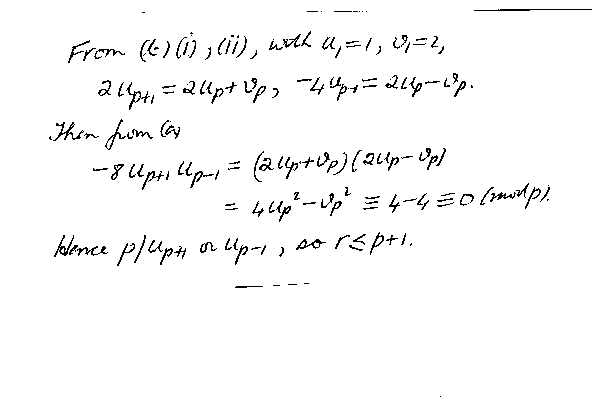 From (b) (i), (ii), with u₁=1, v₁=2,
2u_{p+1} = 2u_p + v_p, -4u_{p-1} = 2u_p - v_p.
Then from (a)
-8 u_{p+1} u_{p-1} = (2u_p + v_p)(2u_p - v_p)
= 4u_p² - v_p² ≡ 4-4 ≡ 0 (mod p).
Hence p/u_{p+1} or u_{p-1}, so r ≤ p+1.